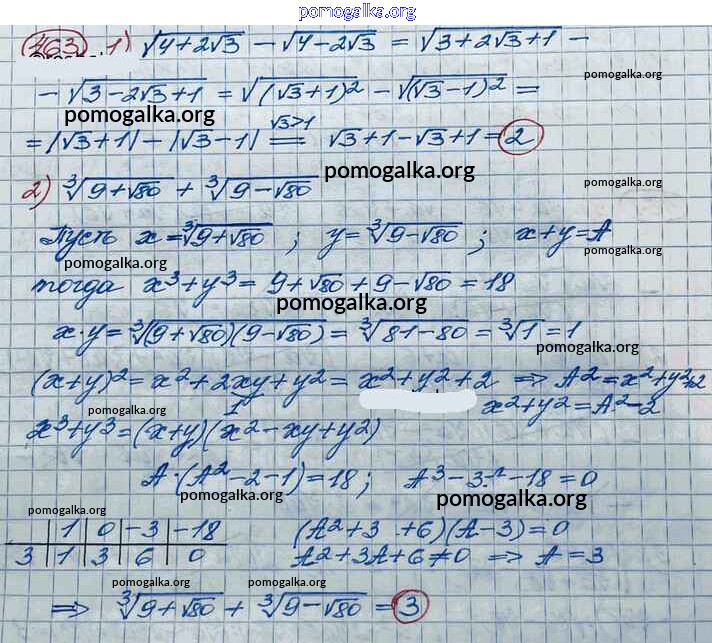 pomogalka.org
463 1) √(4+2√3) − √(4−2√3) = √(3+2√3+1) −
pomogalka.org
− √(3−2√3+1) = √((√3+1)²) − √((√3−1)²) =
pomogalka.org
= |√3+1| − |√3−1| =(√3>1) √3+1−√3+1 = 2
pomogalka.org
pomogalka.org
2) ∛(9+√80) + ∛(9−√80)
Пусть x = ∛(9+√80) ; y = ∛(9−√80) ; x+y=A
pomogalka.org
pomogalka.org
тогда x³+y³ = 9+√80+9−√80 = 18
pomogalka.org
x·y = ∛((9+√80)(9−√80)) = ∛(81−80) = ∛1 = 1
pomogalka.org
(x+y)² = x²+2xy+y² = x²+y²+2 ⇒ A² = x²+y²+2
pomogalka.org
1 x²+y² = A²−2
x³+y³ = (x+y)(x²−xy+y²)
A·(A²−2−1) = 18 ; A³−3 −18=0
pomogalka.org
pomogalka.org
pomogalka.org
1 0 −3 −18 (A²+3 +6)(A−3)=0
3 1 3 6 0 A²+3A+6≠0 ⇒ A=3
pomogalka.org pomogalka.org
⇒ ∛(9+√80) + ∛(9−√80) = 3